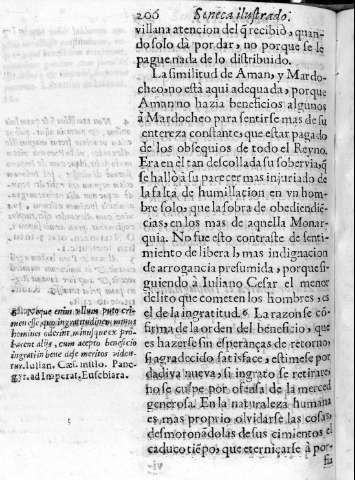 206 Seneca ilustrado.
villana atencion del q̃ recibiò, quan-
do solo dà por dar, no porque se le
pague nada de lo distribuido.
La similitud de Aman, y Mardo-
cheo, no està aqui adequada, porque
Aman no hazia beneficios algunos
à Mardocheo para sentirse mas de su
entereza constante, que estar pagado
de los obsequios de todo el Reyno.
Era en èl tan descollada su sobervia, q̃
se hallò à su parecer mas injuriado de
la falta de humillacion en vn hom-
bre solo, que la sobra de obediendiẽ-
cias, en los mas de aquella Monar-
quia. No fue esto contraste de senti-
miento de liberal, mas indignacion
de arrogancia presumida, porque si-
guiendo à Iuliano Cesar el menor
delito que cometen los hombres, es
el de la ingratitud. 6. La razon se cõ-
firma de la orden del beneficio, que
es hazerse sin esperanças de retorno,
si agradecido satisface, estimese por
dadiva nueva, si ingrato se retirare,
no se culpe por ofensa de la merced
generosa. En la naturaleza humana
es mas proprio olvidarse las cosas,
desmoronãdolas de sus cimientos el
caduco tiẽpo, que eternizarse à por-
fia
6 Neque enim vllum puto cri-
men esse quo ingratitudinem, minus
homines obeient, minusque ex pro-
bacent alijs, cum acepto beneficio
ingrati in bene dese meritos viden-
tur. Iulian. Cæs.
Pane-
gyr. ad Imperat. Eusebiara.